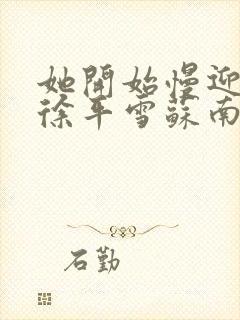 她開始慢迎
徐年雪蘇南
石勤